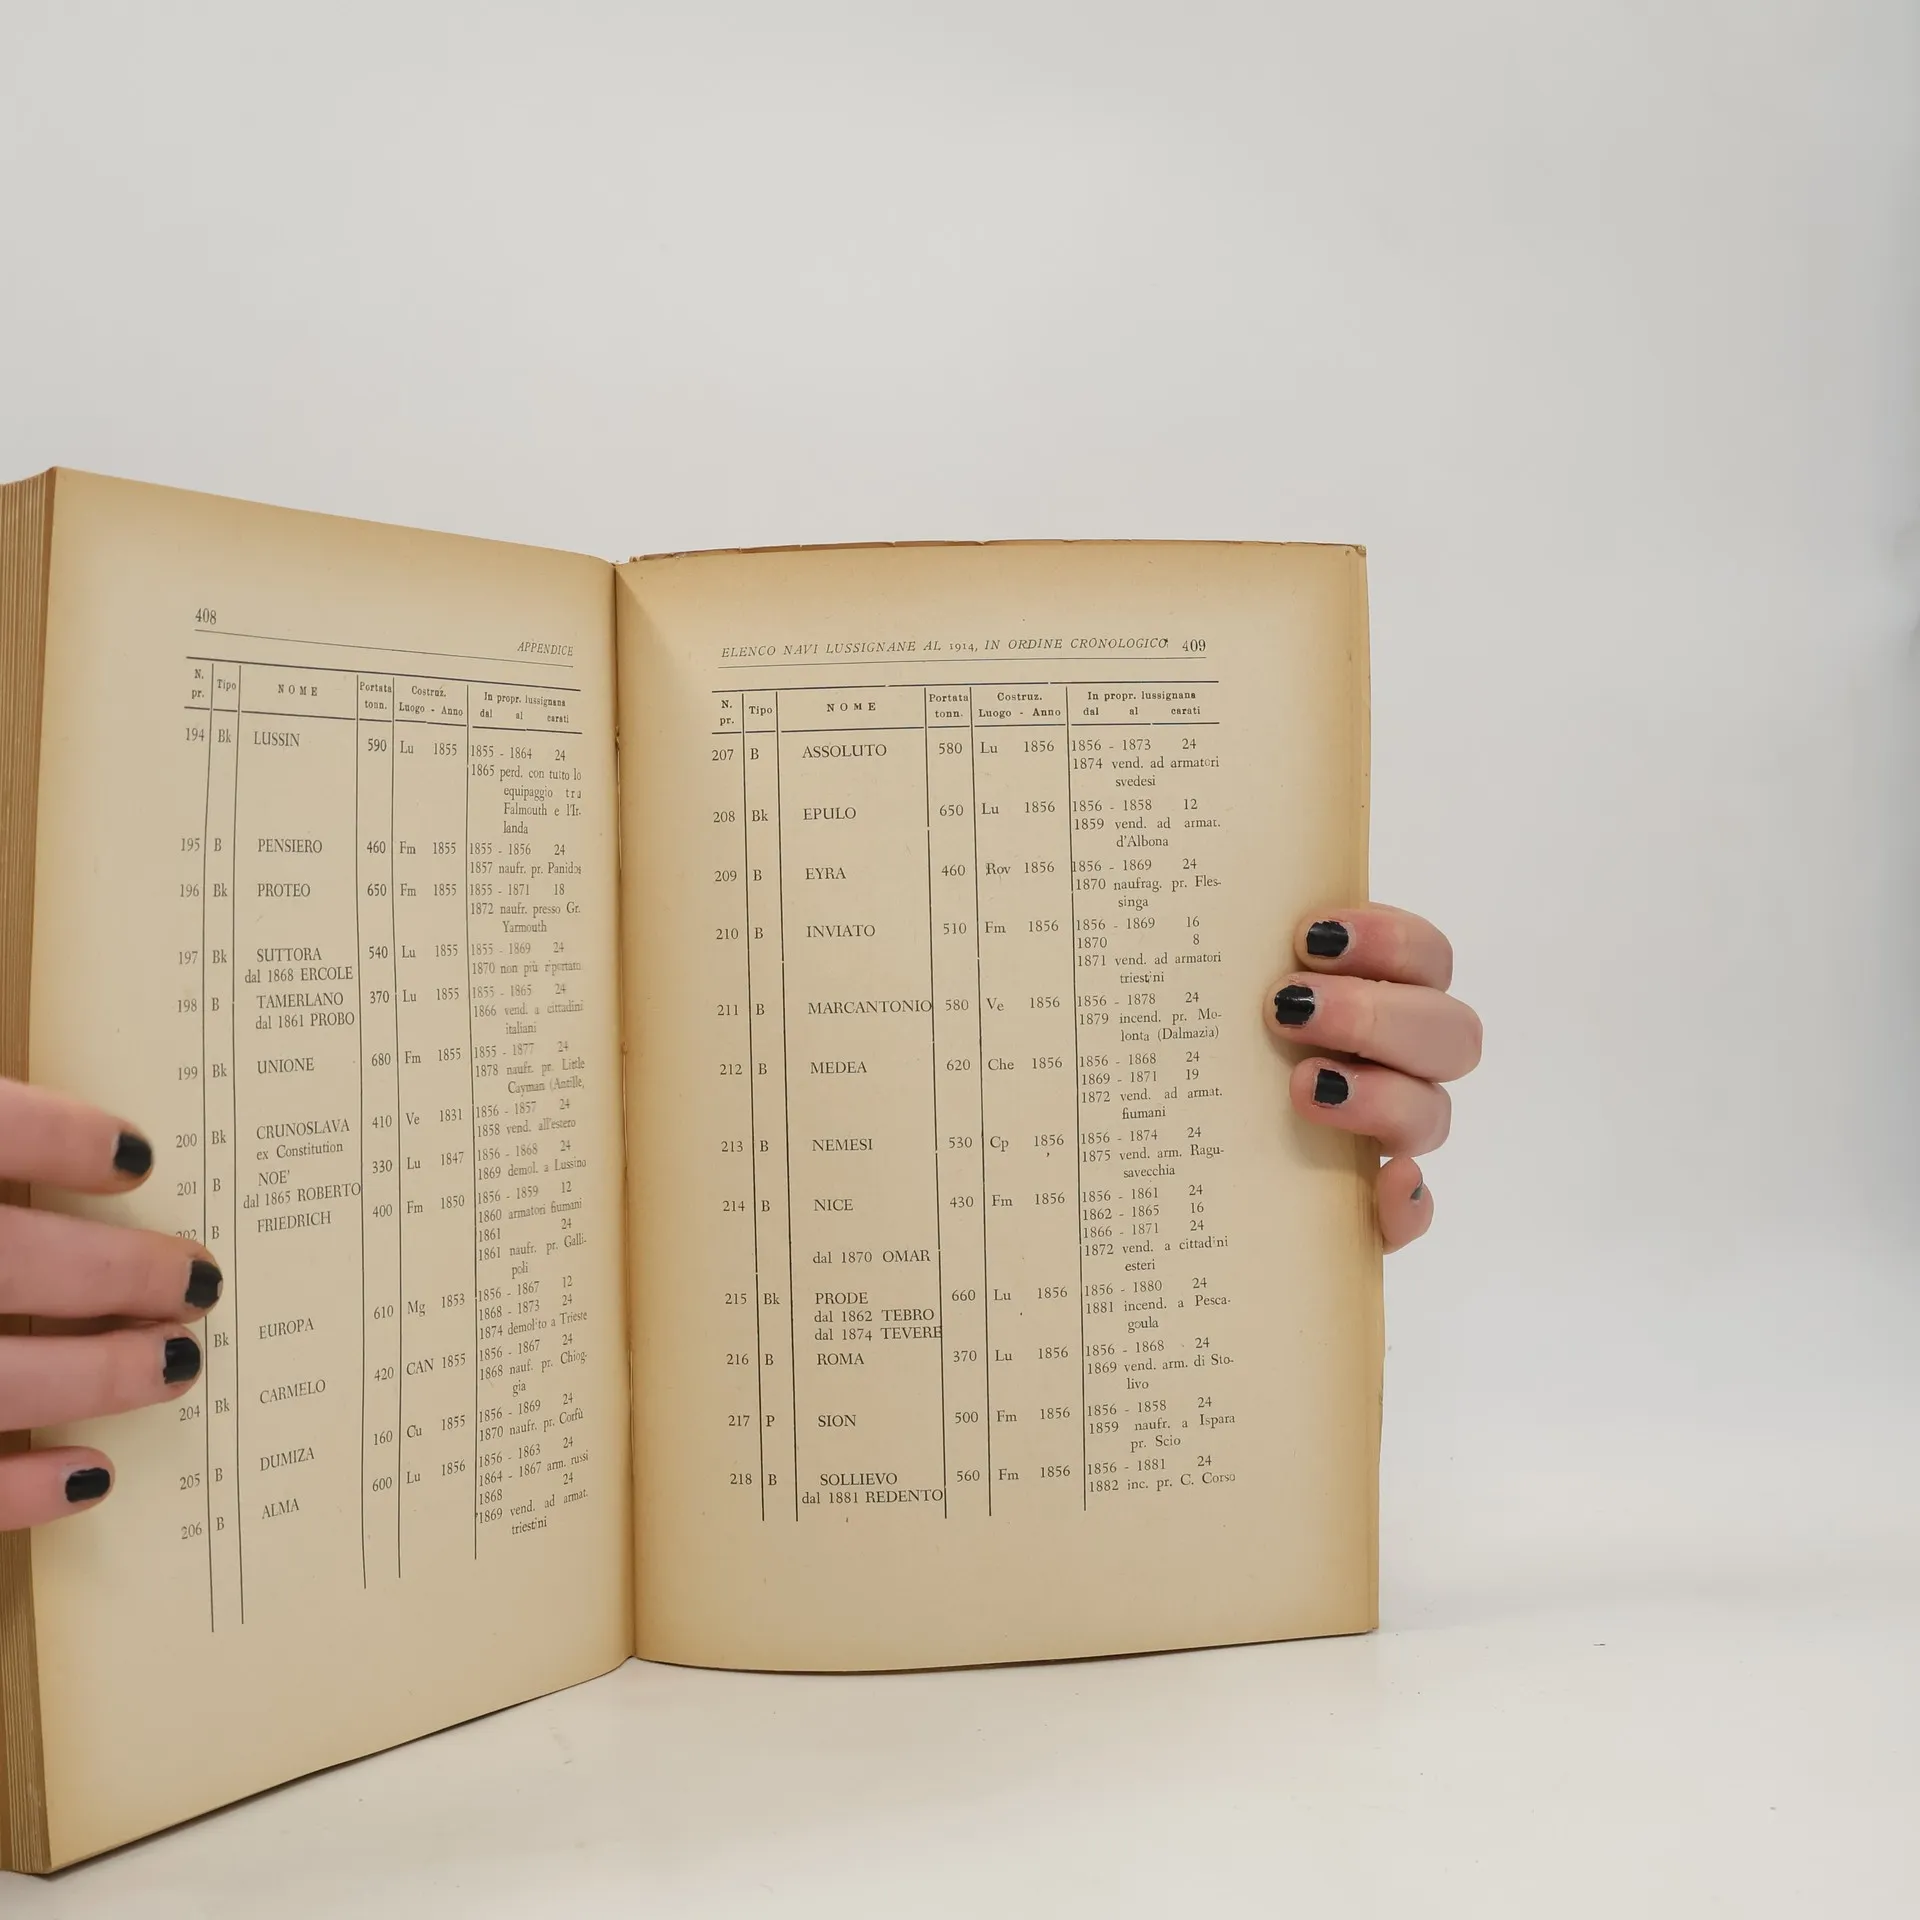 408
APPENDICE
N. pr. Tipo NOME Portata tonn. Costruz. Luogo - Anno In propr. lussignana dal al carati
194 Bk LUSSIN 590 Lu 1855 1855 - 1864 24
1865 perd. con tutto lo
equipaggio tra
Falmouth e l'Ir-
landa
195 B PENSIERO 460 Fm 1855 1855 - 1856 24
1857 naufr. pr. Panidos
196 Bk PROTEO 650 Fm 1855 1855 - 1871 18
1872 naufr. presso Gr.
Yarmouth
197 Bk SUTTORA 540 Lu 1855 1855 - 1869 24
dal 1868 ERCOLE 1870 non più riportato
198 B TAMERLANO 370 Lu 1855 1855 - 1865 24
dal 1861 PROBO 1866 vend. a cittadini
italiani
199 Bk UNIONE 680 Fm 1855 1855 - 1877 24
1878 naufr. pr. Little
Cayman (Antille,
200 Bk CRUNOSLAVA 410 Ve 1831 1856 - 1857 24
ex Constitution 1858 vend. all'estero
201 B NOE' 330 Lu 1847 1856 - 1868 24
dal 1865 ROBERTO 1869 demol. a Lussino
202 B FRIEDRICH 400 Fm 1850 1856 - 1859 12
1860 armatori fiumani
1861 24
1861 naufr. pr. Galli-
poli
Bk EUROPA 610 Mg 1853 1856 - 1867 12
1868 - 1873 24
1874 demol'to a Trieste
204 Bk CARMELO 420 CAN 1855 1856 - 1867 24
1868 nauf. pr. Chiog-
gia
205 B DUMIZA 160 Cu 1855 1856 - 1869 24
1870 naufr. pr. Corfù
206 B ALMA 600 Lu 1856 1856 - 1863 24
1864 - 1867 arm. russi
1868 24
1869 vend. ad armat.
triestini
ELENCO NAVI LUSSIGNANE AL 1914, IN ORDINE CRONOLOGICO 409
N. pr. Tipo NOME Portata tonn. Costruz. Luogo - Anno In propr. lussignana dal al carati
207 B ASSOLUTO 580 Lu 1856 1856 - 1873 24
1874 vend. ad armatori
svedesi
208 Bk EPULO 650 Lu 1856 1856 - 1858 12
1859 vend. ad armat.
d'Albona
209 B EYRA 460 Rov 1856 1856 - 1869 24
1870 naufrag. pr. Fles-
singa
210 B INVIATO 510 Fm 1856 1856 - 1869 16
1870 8
1871 vend. ad armatori
triestini
211 B MARCANTONIO 580 Ve 1856 1856 - 1878 24
1879 incend. pr. Mo-
lonta (Dalmazia)
212 B MEDEA 620 Che 1856 1856 - 1868 24
1869 - 1871 19
1872 vend. ad armat.
fiumani
213 B NEMESI 530 Cp 1856 1856 - 1874 24
1875 vend. arm. Ragu-
savecchia
214 B NICE 430 Fm 1856 1856 - 1861 24
1862 - 1865 16
1866 - 1871 24
dal 1870 OMAR 1872 vend. a cittadini
esteri
215 Bk PRODE 660 Lu 1856 1856 - 1880 24
dal 1862 TEBRO 1881 incend. a Pesca-
dal 1874 TEVERE goula
216 B ROMA 370 Lu 1856 1856 - 1868 24
1869 vend. arm. di Sto-
livo
217 P SION 500 Fm 1856 1856 - 1858 24
1859 naufr. a Ispara
pr. Scio
218 B SOLLIEVO 560 Fm 1856 1856 - 1881 24
dal 1881 REDENTO 1882 inc. pr. C. Corso